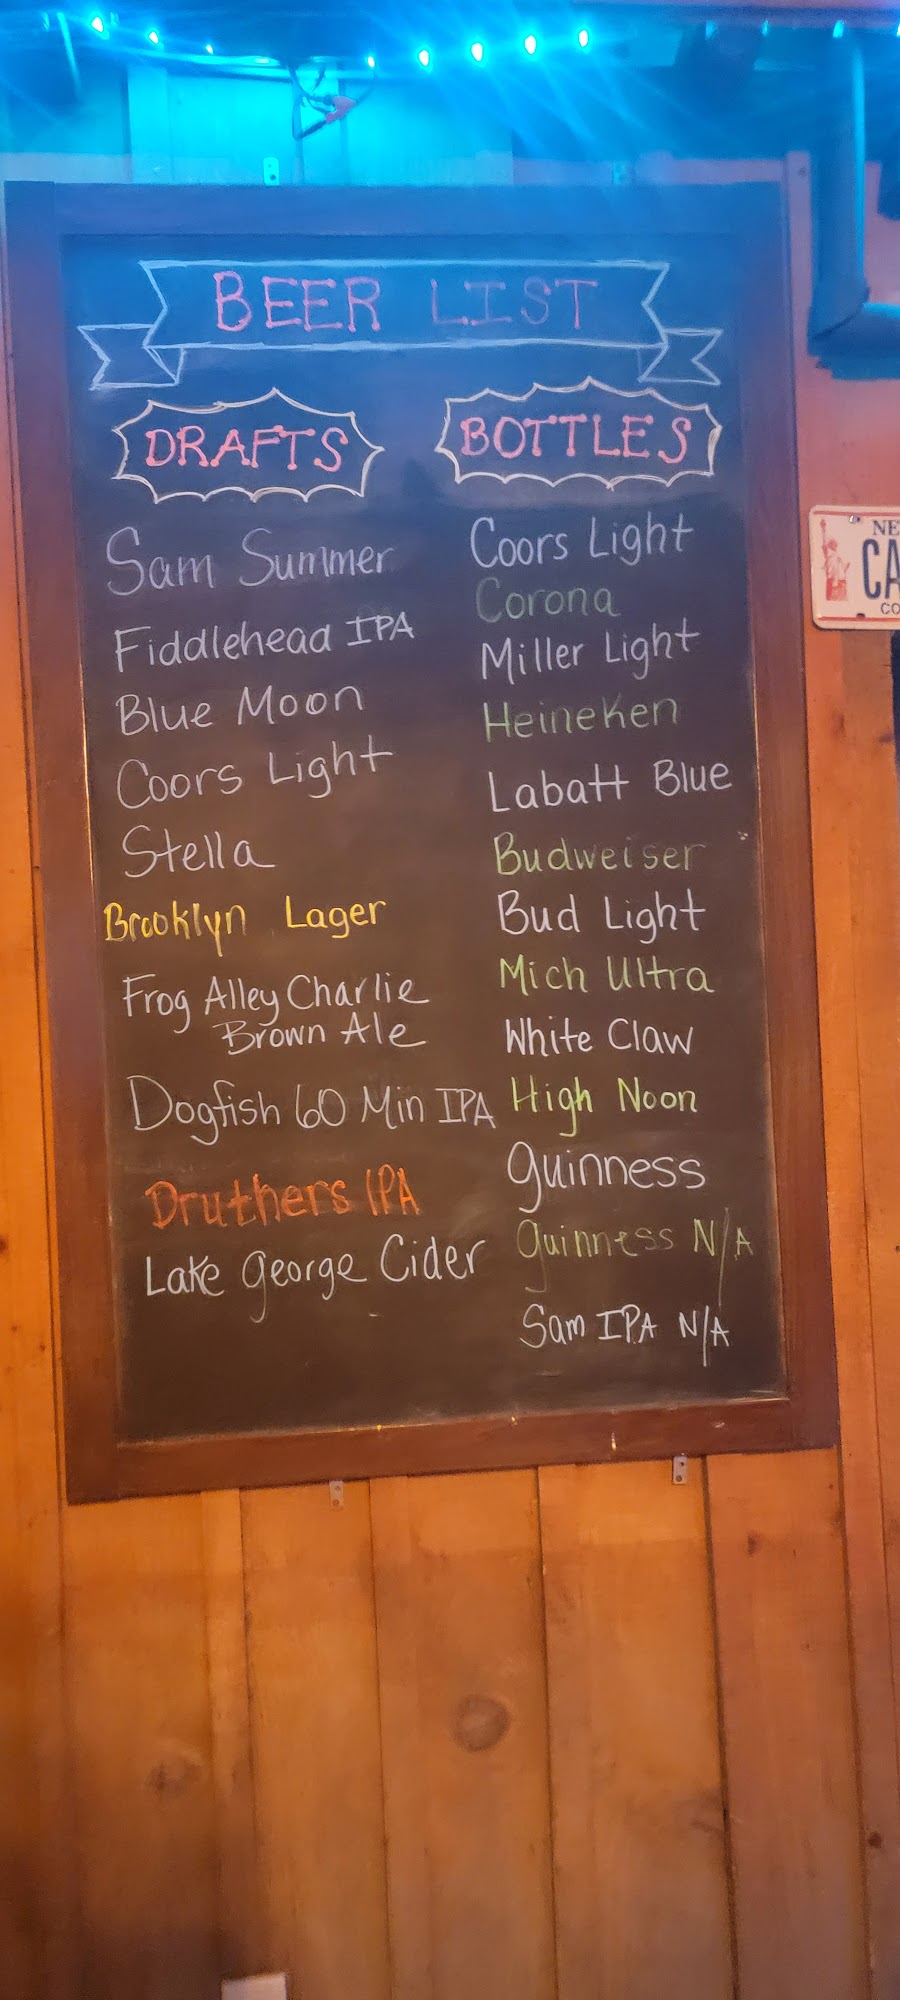 BEER LIST
DRAFTS
Sam Summer
Fiddlehead IPA
Blue Moon
Coors Light
Stella
Brooklyn Lager
Frog Alley Charlie
Brown Ale
Dogfish 60 Min IPA
Druthers IPA
Lake George Cider
BOTTLES
Coors Light
Corona
Miller Light
Heineken
Labatt Blue
Budweiser
Bud Light
Mich Ultra
White Claw
High Noon
Guinness
Guinness N/A
Sam IPA N/A